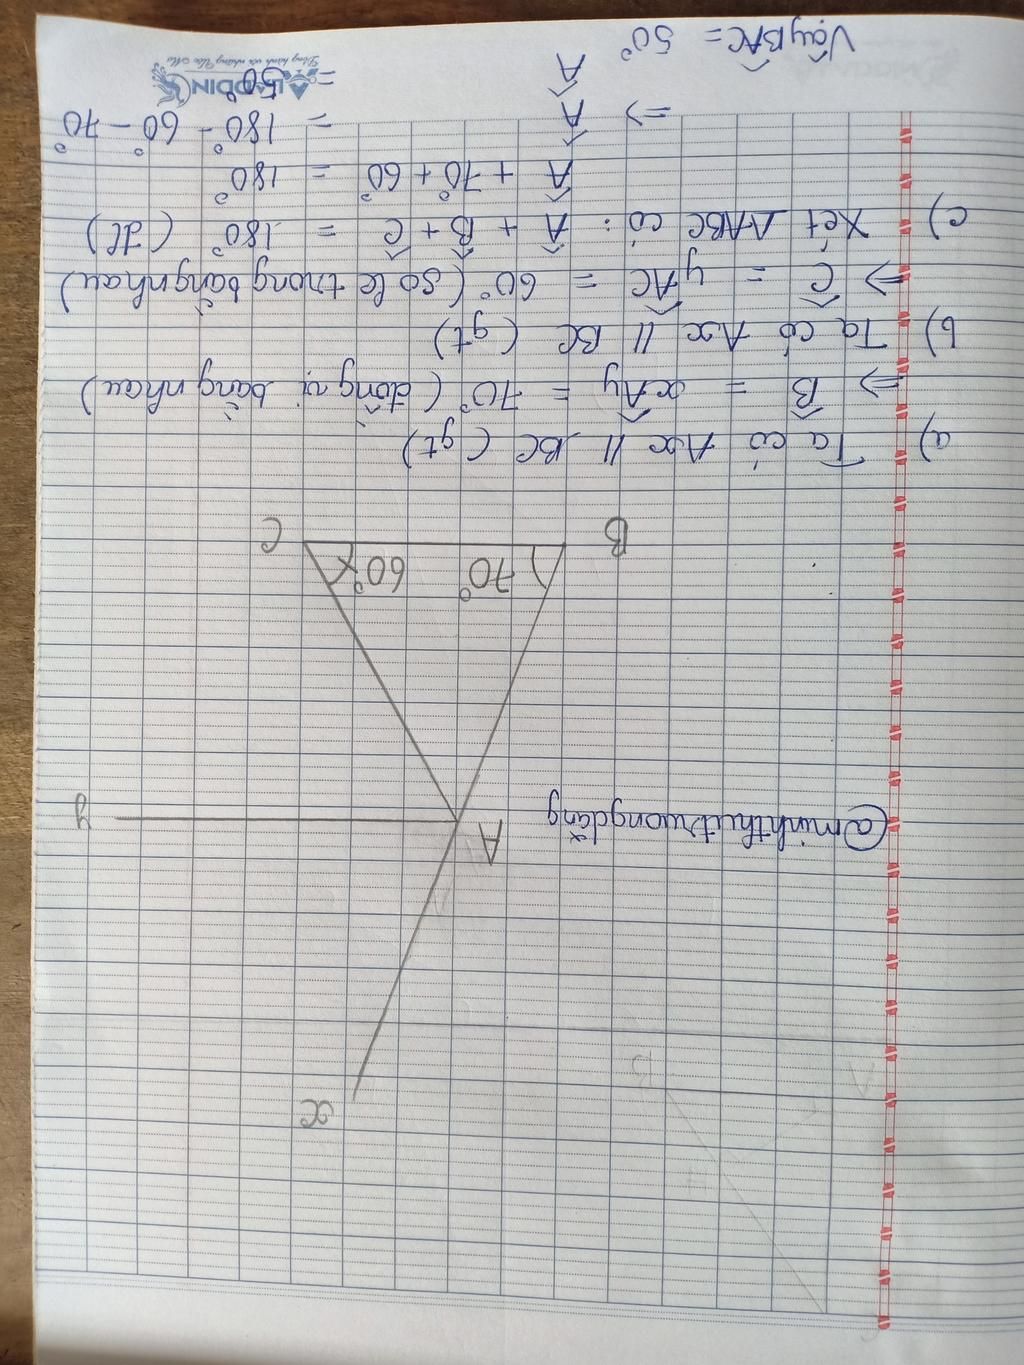 x
A
y
@minhthutruongdăng
70°
60°
B
C
a) Ta có Ax // BC (gt)
=> B̂ = xÂy = 70° (đồng vị bằng nhau)
b) Ta có Ax // BC (gt)
=> Ĉ = yÂC = 60° (so le trong bằng nhau)
c) Xét ΔABC có: Â + B̂ + Ĉ = 180° (đl)
 + 70° + 60° = 180°
=> Â = 180° - 60° - 70°
 = 50°
Vậy BÂC = 50°
Đồng hành với những Ước Mơ